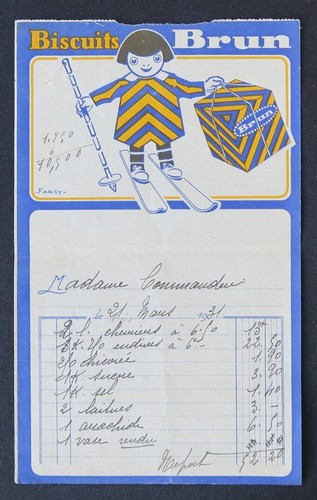 Biscuits Brun
Brun
1.750
10,500
FARCY-
Madame Commandeur
le 21 Mars 1931
2 l. à 6.50 13
3 K. à 22 50
2/0 chicorée 1. 90
1 K sucre 3. 90
1 K. sel 1. 40
2 laitues 3. -
1 arachide 6. 50
1 vase rendu
52 20